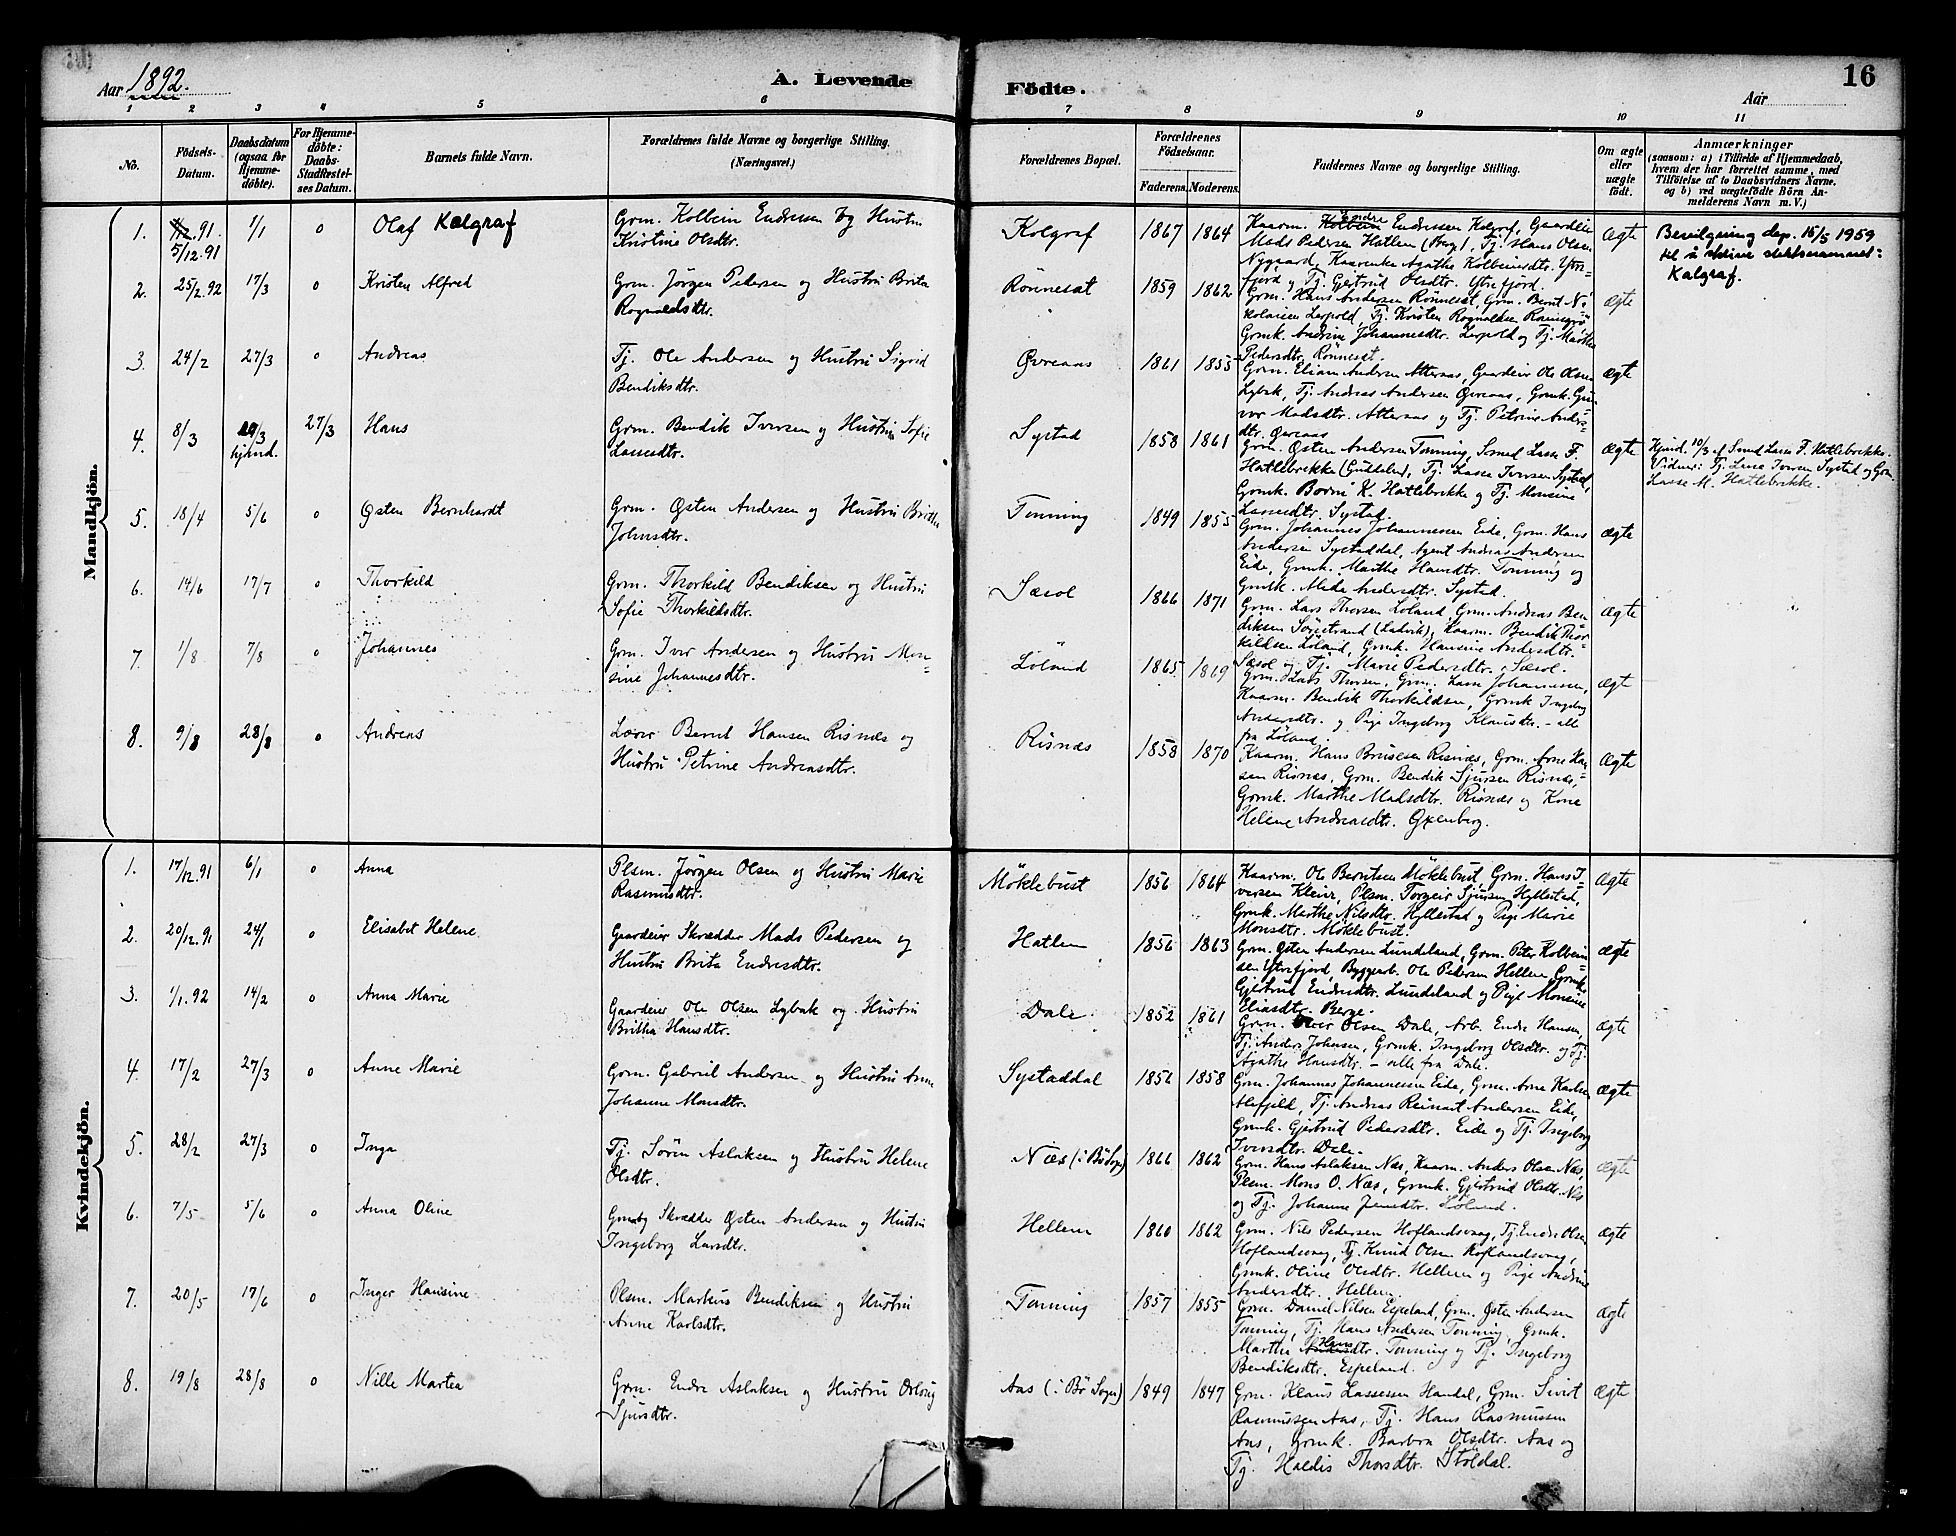 Aar 1892.
A. Levende
Födte.
Aar
16
1 2 3 4 5 6 7 8 9 10 11
No.
Födsels-
Datum.
Daabsdatum
(ogsaa for
Hjemme-
döbte).
For Hjemme-
döbte:
Daabs-
Stadfæstel-
ses Datum.
Barnets fulde Navn.
Forældrenes fulde Navne og borgerlige Stilling.
(Næringsvei.)
Forældrenes Bopæl.
Forældrenes
Födselsaar.
Faderens. Moderens.
Faddernes Navne og borgerlige Stilling.
Om ægte
eller
uægte
födt.
Anmærkninger
(saasom: a) i Tilfælde af Hjemmedaab,
hvem der har forrettet samme, med
Tilföielse af to Daabsvidners Navne,
og b) ved uægtefödte Börn An-
melderens Navn m. V.)
Mandkjön.
1. 5/12.91 1/1 0 Olaf Kalgraf
Grm. Kolbein Endresen og Hustru
Kristine Olsdtr.
Kolgraf 1867 1864
Kaarm. Endre Endresen Kolgraf, Gaardeier
Mads Pedersen Hatlem (Berge), Tj. Hans Olsen
Nygaard, Kaarenke Agathe Kolbeinsdtr. Ytre-
fjord og Tj. Gjertrud Olsdtr. Ytrefjord.
Ægte
Bevilgning dep. 15/5 1959
til å skrive slektsnavnet:
Kalgraf.
2. 25/2.92 17/3 0 Kristen Alfred
Grm. Jörgen Pedersen og Hustru Brita
Rognaldsdtr.
Rönneset 1859 1862
Grm. Hans Andersen Rönneset, Grm. Bernt Ni-
kolaisen Leipold, Tj. Kristen Rognaldsen
Grmk. Andrine Johannesdtr. Leipold og Tj. Marthe
Pedersdtr. Rönneset.
ægte
3. 24/2 27/3 0 Andreas
Tj. Ole Andersen og Hustru Sigrid
Bendiksdtr.
Øvreaas 1861 1855
Grm. Elias Andersen Atteraas, Gaardeier Ole Olsen
Lybæk, Tj. Andreas Andersen Øvreaas, Grmk. Gu-
vor Madsdtr. Atteraas og Tj. Petrine Anders-
dtr. Øvreaas
ægte
4. 8/3 10/3 hjmd. 27/3 Hans
Grm. Bendik Iversen og Hustru Sofie
Lassesdtr.
Systad 1858 1861
Grm. Østen Andersen Tonning, Smed Lasse F.
Hatlebrekke (Guddal), Tj. Lasse Iversen Systad,
Grmk. Borni K. Hatlebrekke og Tj. Monsine
Lassesdtr. Systad.
Ægte
Hjmd. 10/3 af Smed Lasse F. Hatlebrekke.
Vidner: Tj. Lasse Iversen Systad og Grm.
Lasse M. Hatlebrekke.
5. 18/4 5/6 0 Østen Bernhardt
Grm. Østen Andersen og Hustru Britha
Johnsdtr.
Tonning 1849 1855
Grm. Johannes Johannessen Eide, Grm. Hans
Andersen Systaddal, Agent Andreas Andersen
Eide, Grmk. Marthe Hansdtr. Tonning og
Grmk. Meda Andersdtr. Systad.
Ægte
6. 14/6 17/7 0 Thorkild
Grm. Thorkild Bendiksen og Hustru
Sofie Thorkildsdtr.
Sæsol 1866 1871
Grm. Lars Thorsen Löland, Grm. Andreas Ben-
diksen Sörestrand (Ladvik), Kaarm. Bendik Thor-
kildsen Löland, Grmk. Hansine Andersdtr.
Sæsol og Tj. Marie Pedersdtr. Sæsol.
Ægte
7. 1/8 7/8 0 Johannes
Grm. Iver Andersen og Hustru Mon-
sine Johannesdtr.
Löland 1865 1869
Grm. Lars Thorsen, Grm. Lasse Johannessen,
Kaarm. Bendik Thorkildsen, Grmk Ingeborg
Andersdtr. og Pige Ingeborg Klausdtr. - alle
fra Löland.
ægte
8. 9/8 28/8 0 Andreas
Lærer Bernt Hansen Risnæs og
Hustru Petrine Andreasdtr.
Risnæs 1858 1870
Kaarm. Hans Brusesen Risnæs, Grm. Arne Han-
sen Risnæs, Grm. Bendik Sjursen Risnæs,
Grmk. Marthe Madsdtr. Risnæs og Kone
Helene Andreasdtr. Oxenberg.
Ægte
Kvindekjön.
1. 17/12.91 6/1 0 Anna
Plsm. Jörgen Olsen og Hustru Marie
Rasmusdtr.
Möklebust 1856 1864
Kaarm. Ole Berntsen Möklebust, Grm. Hans I-
versen Kleiva, Plsm. Torgeir Sjursen Hyllestad,
Grmk. Marthe Nilsdtr. Hyllestad og Pige Marie
Monsdtr. Möklebust.
Ægte
2. 20/12.91 24/1 0 Elisabet Helene
Gaardeier Skrædder Mads Pedersen og
Hustru Brita Endresdtr.
Hatlem 1856 1863
Grm. Østen Andersen Lundeland, Grm. Peter Kolbein-
sen Ytrefjord, Byggearb. Ole Pedersen Hellem, Grmk.
Gjertrud Endresdtr. Lundeland og Pige Monsine
Eliasdtr. Berge.
ægte
3. 1/1.92 14/2 0 Anna Marie
Gaardeier Ole Olsen Lybæk og Hustru
Britha Hansdtr.
Dale 1852 1861
Grm. Olsen Dale, Arb. Endre Hansen,
Tj. Anders Johnsen, Grmk. Ingeborg Olsdtr. og Tj.
Agathe Hansdtr. - alle fra Dale.
ægte
4. 17/2 27/3 0 Anne Marie
Grm. Gabriel Andersen og Hustru Anne
Johanne Monsdtr.
Systaddal 1856 1858
Grm. Johannes Johannessen Eide, Grm. Arne Karlsen
Alefjeld, Tj. Andreas Reinart Andersen Eide,
Grmk. Gjertrud Pedersdtr. Eide og Tj. Ingeborg
Iversdtr. Dale.
Ægte
5. 28/2 27/3 0 Inga
Tj. Sören Aslaksen og Hustru Helene
Olsdtr.
Næs (i Bö Sogn) 1866 1862
Grm. Hans Aslaksen Næs, Kaarm. Anders Olsen Næs,
Plsm. Mons O. Næs, Grmk. Gjertrud Olsdtr. Næs
og Tj. Johanne Jensdtr. Löland.
ægte
6. 7/5 5/6 0 Anna Oline
Grmbg Skrædder Østen Andersen og Hustru
Ingeborg Larsdtr.
Hellem 1860 1862
Grm. Nils Pedersen Hoflandsvaag, Tj. Endre Olsen
Hoflandsvaag, Tj. Knud Olsen Hoflandsvaag,
Grmk. Oline Olsdtr. Hellem og Pige Andrine
Andersdtr. Hellem.
Ægte
7. 20/5 17/6 0 Inger Hansine
Plsm. Markus Bendiksen og Hustru
Anne Karlsdtr.
Tonning 1857 1855
Grm. Daniel Nilsen Espeland, Grm. Østen Andersen
Tonning, Tj. Hans Andersen Tonning, Grmk.
Martha Hansdtr. Tonning og Tj. Ingeborg
Bendiksdtr. Espeland.
Ægte
8. 19/8 28/8 0 Nille Martea
Grm. Endre Aslaksen og Hustru Orlaug
Sjursdtr.
Aas (i Bö Sogn) 1849 1847
Grm. Klaus Lassesen Handal, Grm. Sivert
Rasmussen Aas, Tj. Hans Rasmussen
Aas, Grmk. Barbra Olsdtr. Aas og
Tj. Haldis Thorsdtr. Stöldal.
Ægte